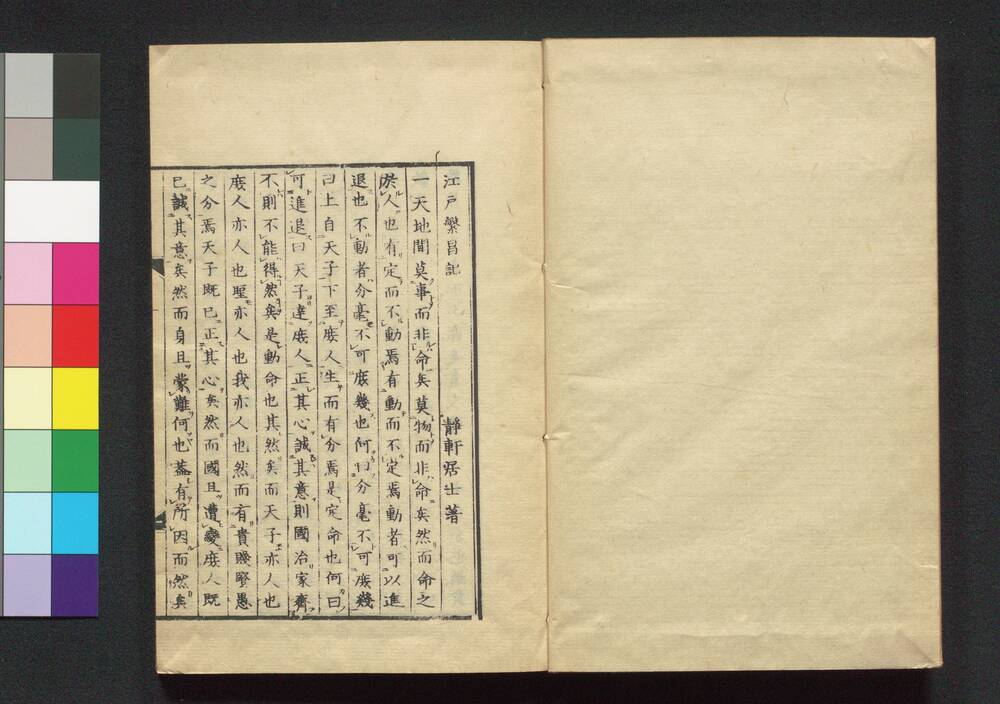 江戶繁昌記 靜軒居士著
一天地間莫事而非命矣莫物而非命矣然而命之
於人也有定而不動焉有動而不定焉動者可以進
退也不動者分毫不可庶幾也何曰分毫不可庶幾
曰上自天子下至庶人生而有分焉是定命也何曰
可進退曰天子達庶人正其心誠其意則國治家齊
不則不能得然矣是動命也其然矣而天子亦人也
庶人亦人也聖亦人也我亦人也然而有貴賤賢愚
之分焉天子既已正其心矣然而國且遭變庶人既
已誠其意矣然而身且蒙難何也蓋有所因而然矣